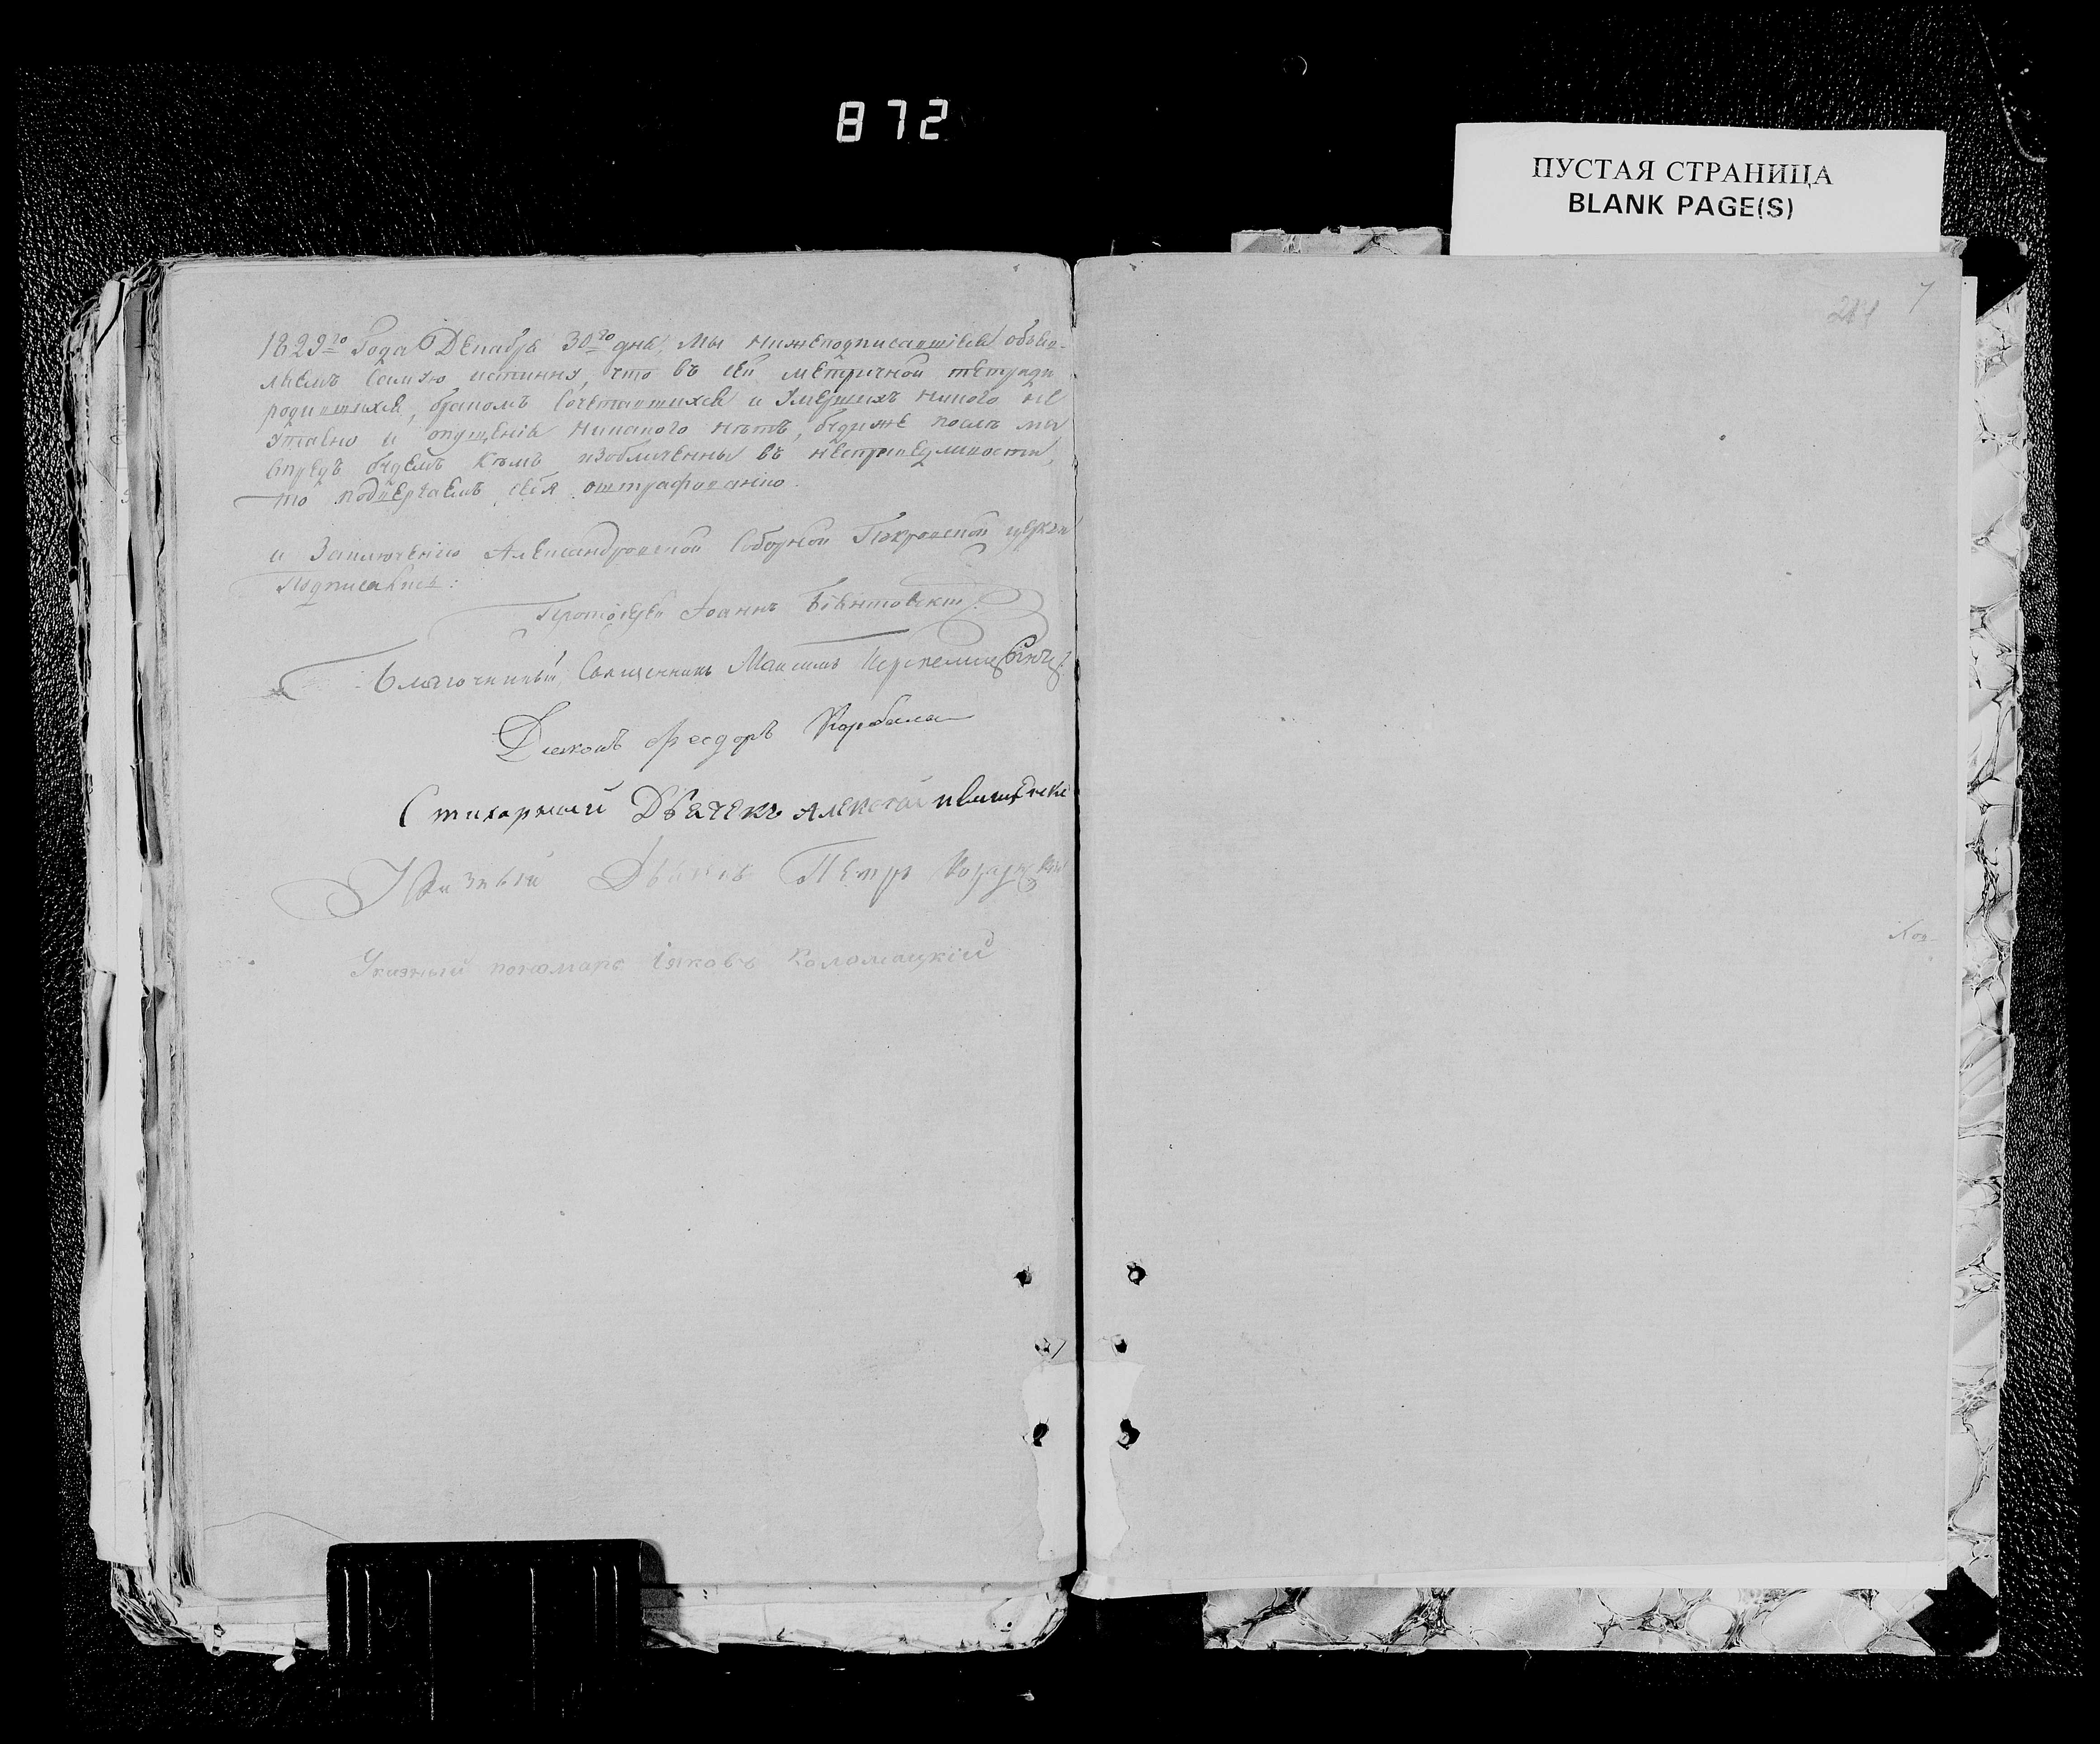 872
ПУСТАЯ СТРАНИЦА
BLANK PAGE(S)
1829го Года Декабря 30го дня, Мы нижеподписавшіеся объяв-
ляемъ самую истинну, что въ сей метричной тетради
родившихся, бракомъ сочетавшихся и умершихъ никого не
утаено и опущенія никакого нѣтъ, будиже послѣ мы
впредь будемъ кѣмъ изобличенны въ несправедливости,
то подвергаемъ себя оштрафованію.
и Заключенію Александровской Соборной Покровской церкви
Подписались:
Протоіерей Іоаннъ
Благочинный Священникъ Максимъ
Діаконъ Феодоръ Корбала
Стихарный Дьячекъ Алексей
Указный Дьячекъ Петръ
Указный пономарь Іяковъ Коломацкій
7